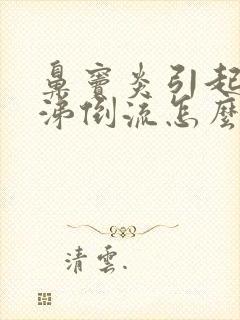 鼻窦炎引起
涕倒流怎麼
清雲.